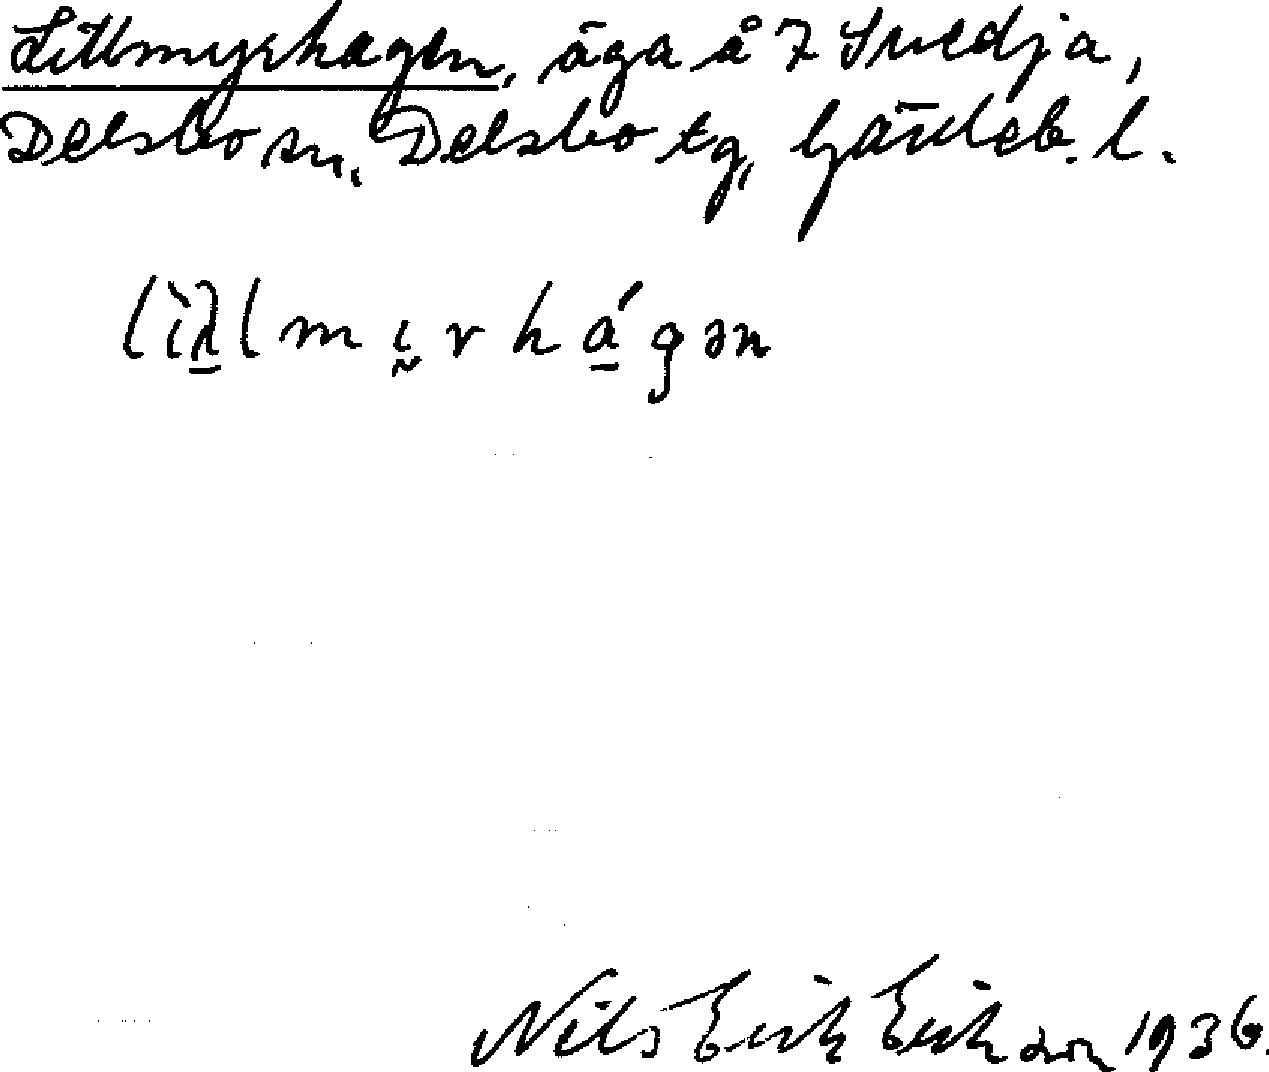 Lillmyrhagen, äga å 7 Svedja,
Delsbo sn, Delsbo tg, Gävleb. l.
lìλlmırhágən
Nils Erik Erikson 1936.